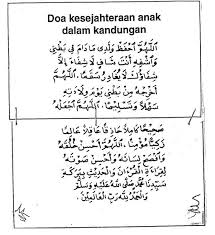 Doa kesejahteraan anak
dalam kandungan
اَللّٰهُمَّ احْفَظْ وَلَدِى مَادَامَ فِى بَطْنِى
وَاشْفِهِ أَنْتَ شَافٍ لَا شِفَاءَ إِلَّا
شِفَاؤُكَ لَا يُغَادِرُ سَقَمًا. اَللّٰهُمَّ
أَخْرِجْهُ مِنْ بَطْنِى يَوْمَ وِلَادَتِهِ
سَهْلًا وَتَسْلِيْمًا. اَللّٰهُمَّ اجْعَلْهُ
صَحِيْحًا كَامِلًا حَاذِقًا عَاقِلًا عَالِمًا
اَللّٰهُمَّ أَحْسِنْ خُلُقَهُ
وَأَفْصِحْ لِسَانَهُ وَأَحْسِنْ صَوْتَهُ
لِقِرَاءَةِ الْقُرْءَانِ وَالْحَدِيْثِ بِبَرَكَةِ
سَيِّدِنَا مُحَمَّدٍ صَلَّى اللهُ عَلَيْهِ وَسَلَّمَ
وَالْحَمْدُ لِلّٰهِ رَبِّ الْعَالَمِيْنَ